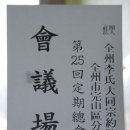 社團法人 全州李氏大同宗約
全州市完山區分
第25回定期總
會議場